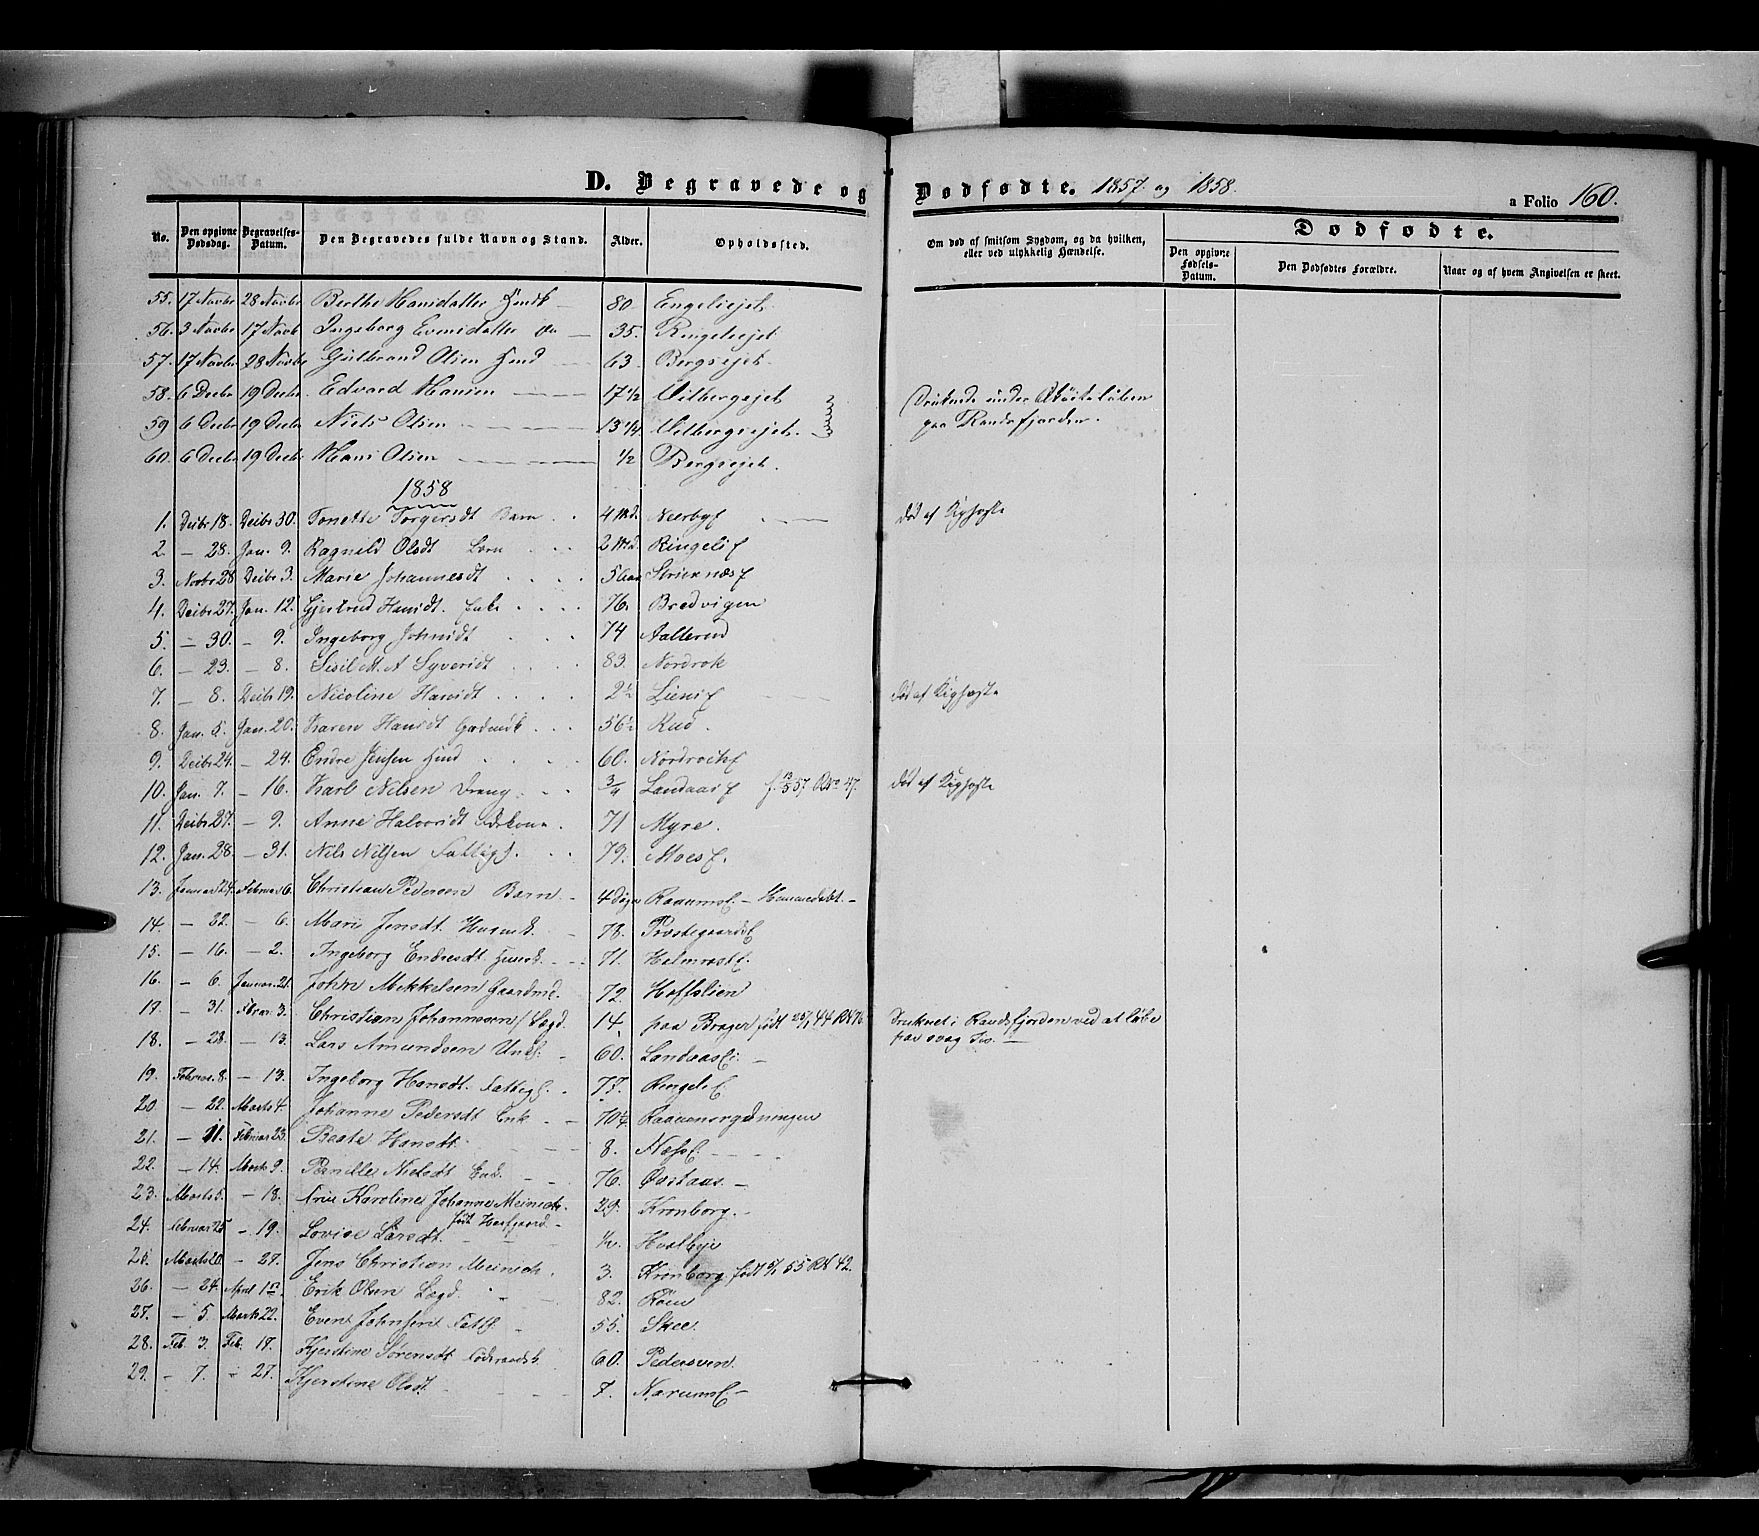 D. Begravede og Dødfødte. 1857 og 1858.
a Folio 160.
No. Den opgivne Dødsdag. Begravelses-Datum. Den Begravedes fulde Navn og Stand. Alder. Opholdssted. Om død af smitsom Sygdom, og da hvilken, eller ved ulykkelig Hændelse. Dødfødte. Den opgivne Fødsels-Datum. Den Dødfødtes Forældre. Naar og af hvem Angivelsen er skeet.
55. 17 Novbr 28 Novbr Berthe Hansdatter 80 Engelieiet
56. 3 Novbr 17 Novb Ingeborg Evensdatter do 35. Ringelieiet
57. 17 Novbr 28 Novbr Gulbrand Olsen Huusmd 63 Bergseiet
58. 6 Decbr 19 Decbr Edvard Hansen 17 1/2 Velbergseiet Druknede under Skøiteløben
59 6 Decbr 19 Decbr Niels Olsen 13 1/4 Velbergseiet. paa Randsfjorden.
60. 6 Decbr 19 Decbr Hans Olsen 1/2 Bergseiet.
1858
1. Decbr 18. Decbr 30. Tonette Torgersdt Barn 4 Md. Neerbyf død af Kighoste
2. - 28. Jan. 9. Ragnild Olsdt Barn 2 Md. Ringelif
3. Novbr 28 Decbr 3. Marie Johannesdt 5 Striknæsf
4. Decbr 27. Jan. 12. Gjertrud Hansdt. Enke 76. Bredvigen
5. - 30. - 9. Ingeborg Johnsdt 74 Aalterud
6. - 23. - 8. Syversdt 83. Nordrok
7. - 8. Decbr 19. Nicoline Hansdt 2 1/2 Lienf død af Kighoste
8. Jan. 5. Jan. 20. Karen Hansdt Gaardmk 56 1/2 Rud.
9. Decbr 24. - 24. Endre Jensen Huusmd 60. Nordrokf
10. Jan. 7. - 16. Karl Nilsen Dreng 3/4 Landaasf død af Kighoste
11. Decbr 27. - 9. Anne Halvorsdt 71 Myre.
12. Jan. 28. - 31. Nils Nilsen Fattigl. 79. Moesf.
13. Januar 24. Februar 6. Christian Pedersen Barn 4 Døgn Raaumsf. - Hjemmedøbt -
14. - 22. - 6. Mari Jensdt Huusmk. 78. Prostegaardsf
15. - 16. - 2. Ingeborg Endresdt Huusmk. 71. Helmrastf.
16. - 6. Januar 21. John Mikkelsen Gaardmd. 72. Hoffslien
17. - 31. Febrar 3. Christian Johannesen Lægd. 14. paa Brager født 44 Druknet i Randsfjorden ved at løbe
18. - 28. - 13. Lars Amundsen Und. 60. Landaasf. - paa svag Iis.
19. Februar 8. - 13. Ingeborg Hansdt. Fattigl. 77. Ringelif.
20. - 22. Marts 4. Johanne Pedersdt Enk 70 1/4 Raaumsrydningen
21. - 11. Februar 23. Beate Hansdt. 8. Næssf.
22. - 14. Marts 9. Pernille Nielsdt Enk. 76. Østaas. -
23. Marts 5. - 18. Fru Karoline Johanne Meinich. 29. Kronborg. -
født Hoefgaard. -
24. Februar 25 - 19. Lovise Larsdt. 1/2. Hvalbye
25. Marts 20. - 27. Jens Christian Meinich. 3. Kronborg. født 55 42.
26. - 24. April 1ste. Erik Olsen Lægd. 82. Røen
27. - 5. Marts 22. Even Johnsen Fattl. 55. Skee.
28. Feb. 3. Feb. 17. Kjerstine Sørensdt Føderaadsk. 60. Pedersven.
29. - 7. - 27. Kjerstine Olsdt. 7. Narumsf. -